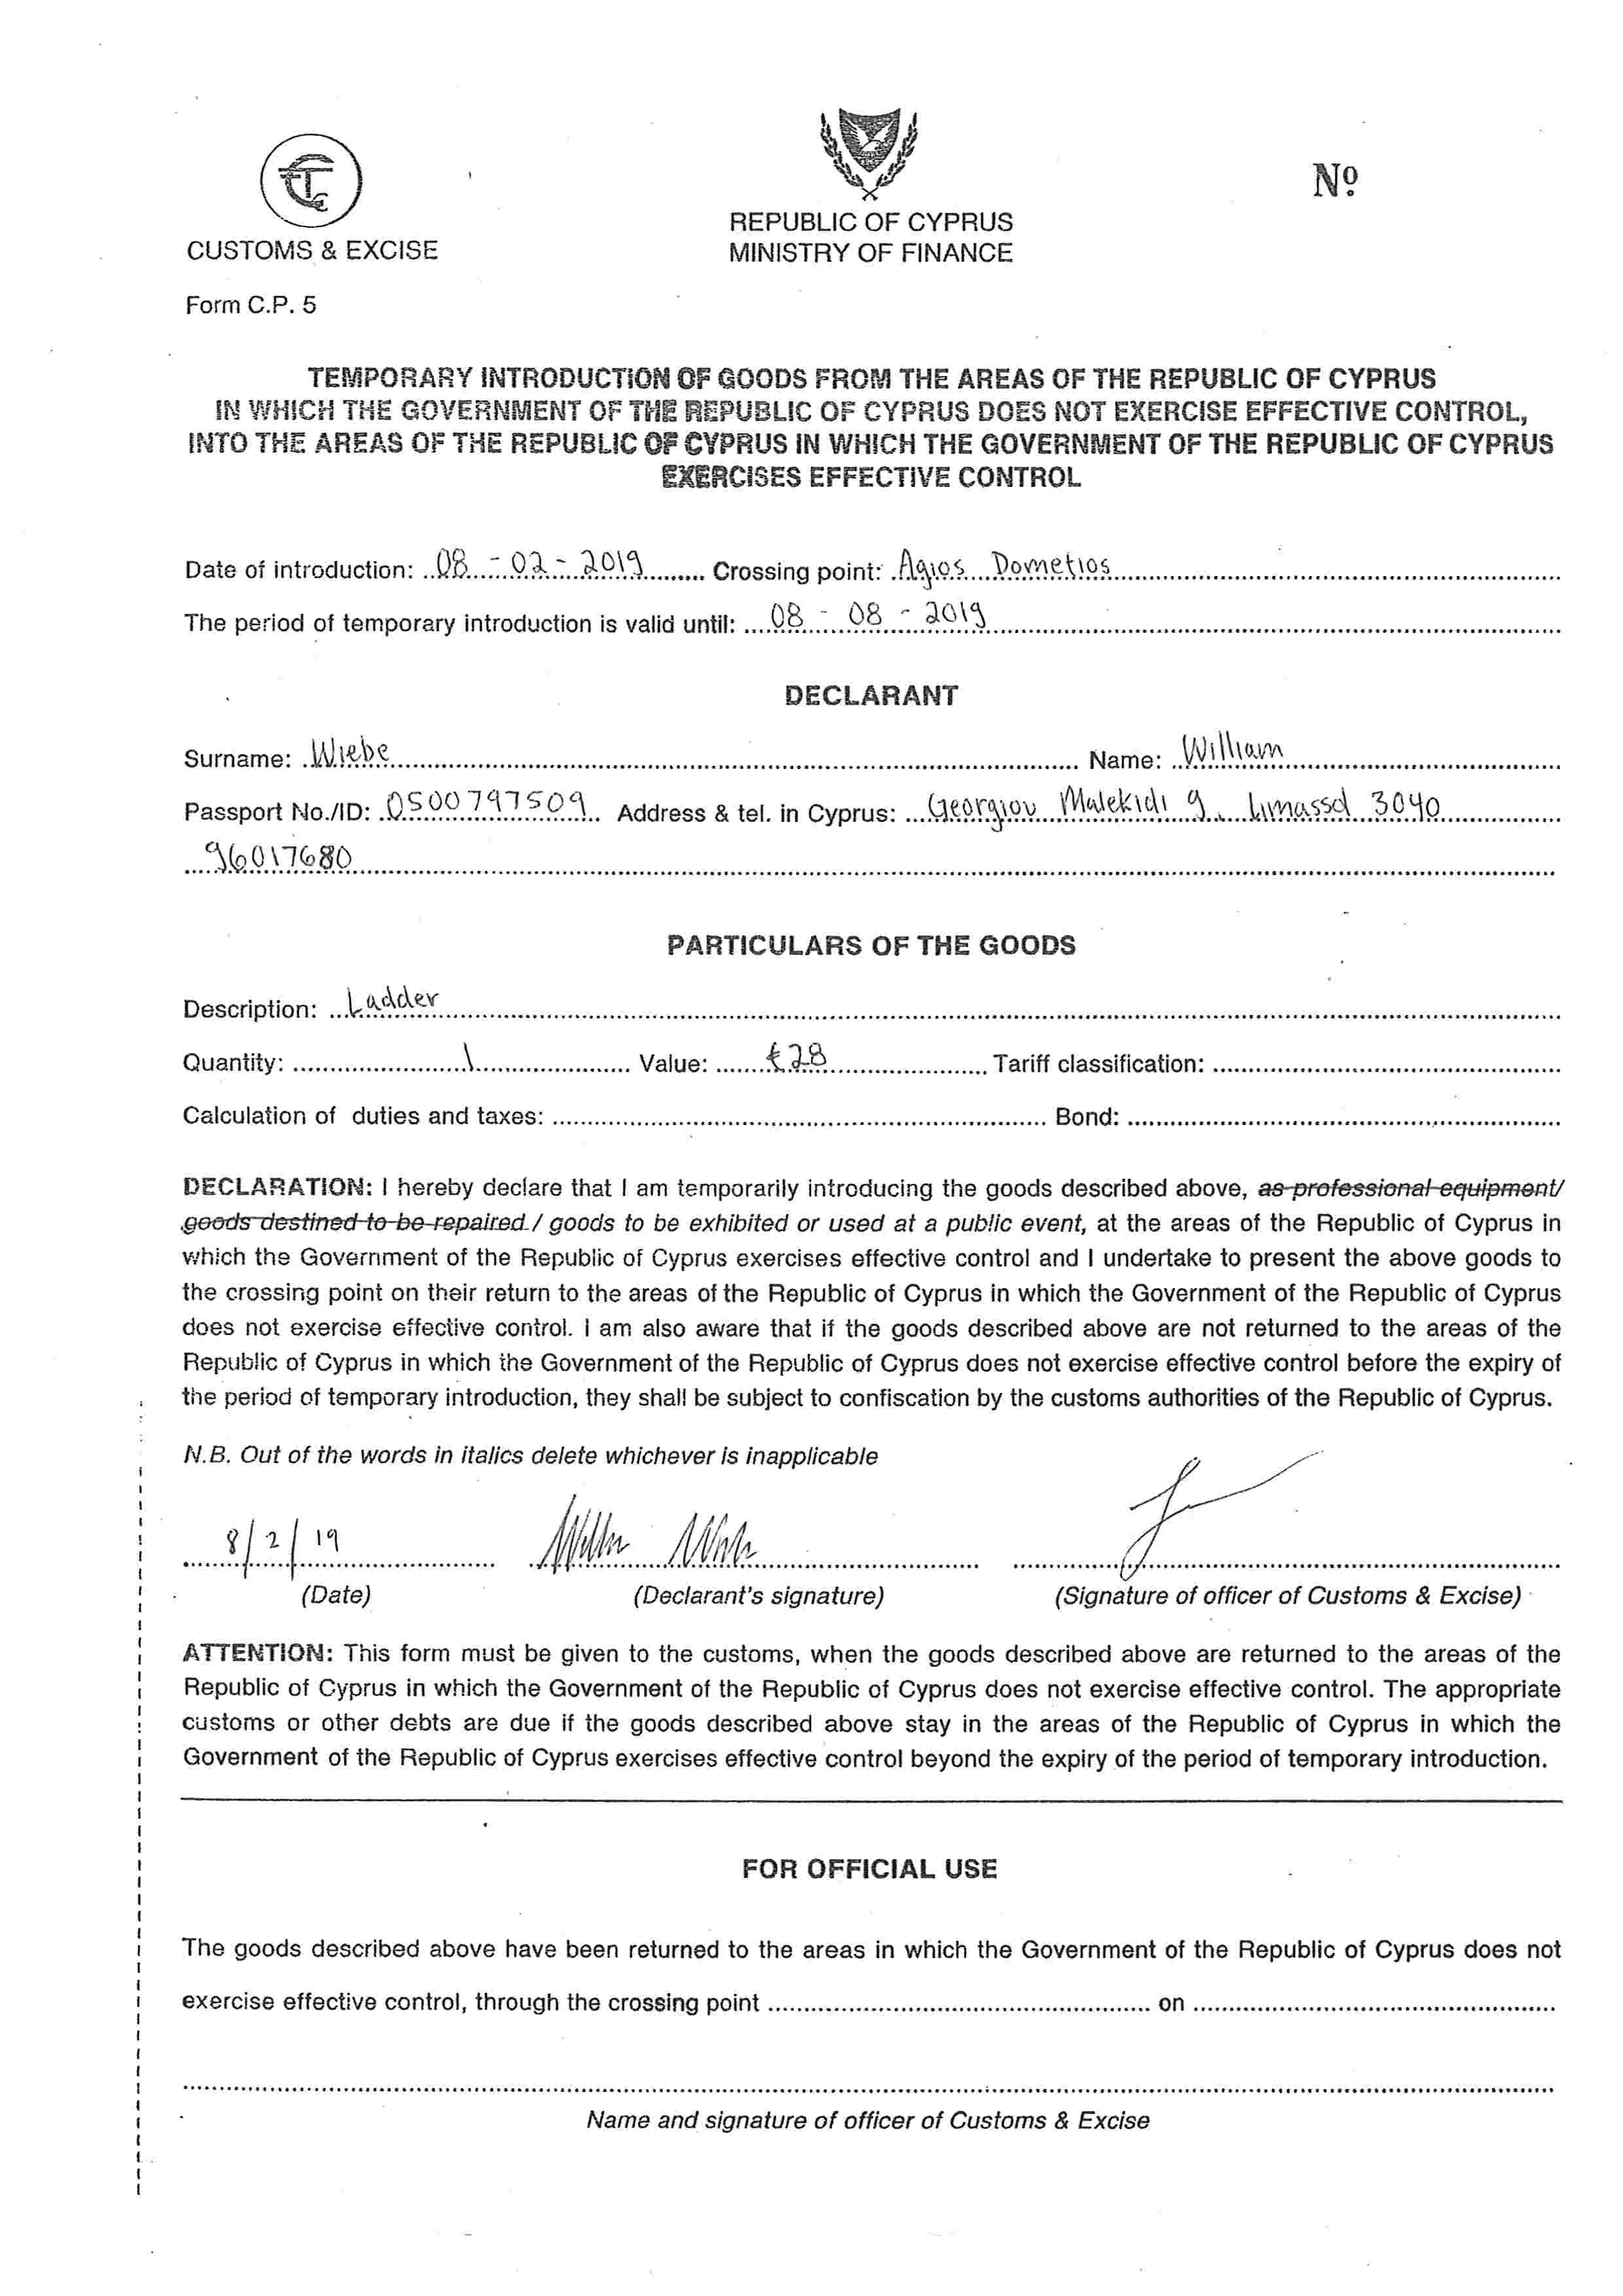 CUSTOMS & EXCISE
REPUBLIC OF CYPRUS
MINISTRY OF FINANCE
Nº
Form C.P. 5
TEMPORARY INTRODUCTION OF GOODS FROM THE AREAS OF THE REPUBLIC OF CYPRUS
IN WHICH THE GOVERNMENT OF THE REPUBLIC OF CYPRUS DOES NOT EXERCISE EFFECTIVE CONTROL,
INTO THE AREAS OF THE REPUBLIC OF CYPRUS IN WHICH THE GOVERNMENT OF THE REPUBLIC OF CYPRUS
EXERCISES EFFECTIVE CONTROL
Date of introduction: 08 - 02 - 2019 Crossing point: Agios Dometios
The period of temporary introduction is valid until: 08 - 08 - 2019
DECLARANT
Surname: Wiebe Name: William
Passport No./ID: 0500797509 Address & tel. in Cyprus: Georgiou Malekidi 9, Limassol 3040
96017680
PARTICULARS OF THE GOODS
Description: Ladder
Quantity: 1 Value: €28 Tariff classification:
Calculation of duties and taxes: Bond:
DECLARATION: I hereby declare that I am temporarily introducing the goods described above, as professional equipment/
goods destined to be repaired / goods to be exhibited or used at a public event, at the areas of the Republic of Cyprus in
which the Government of the Republic of Cyprus exercises effective control and I undertake to present the above goods to
the crossing point on their return to the areas of the Republic of Cyprus in which the Government of the Republic of Cyprus
does not exercise effective control. I am also aware that if the goods described above are not returned to the areas of the
Republic of Cyprus in which the Government of the Republic of Cyprus does not exercise effective control before the expiry of
the period of temporary introduction, they shall be subject to confiscation by the customs authorities of the Republic of Cyprus.
N.B. Out of the words in italics delete whichever is inapplicable
8/2/19
(Date) (Declarant's signature) (Signature of officer of Customs & Excise)
ATTENTION: This form must be given to the customs, when the goods described above are returned to the areas of the
Republic of Cyprus in which the Government of the Republic of Cyprus does not exercise effective control. The appropriate
customs or other debts are due if the goods described above stay in the areas of the Republic of Cyprus in which the
Government of the Republic of Cyprus exercises effective control beyond the expiry of the period of temporary introduction.
FOR OFFICIAL USE
The goods described above have been returned to the areas in which the Government of the Republic of Cyprus does not
exercise effective control, through the crossing point on
Name and signature of officer of Customs & Excise